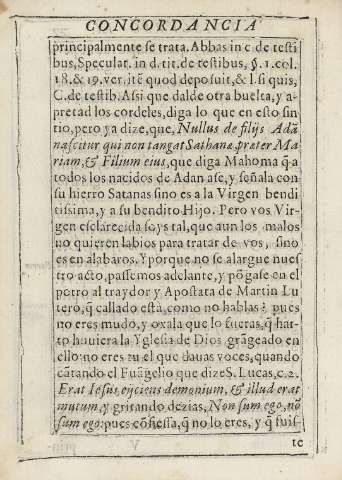 CONCORDANCIA
principalmente se trata. Abbas in c. de testi
bus, Speculat. in d. tit. de testibus, §. 1. col.
18. & 19. ver. itē quod deposuit, & l. si quis,
C. de testib. Assi que dalde otra buelta, y a-
pretad los cordeles, diga lo que en esto sin
tio, pero ya dize, que, Nullus de filijs Adā
nascitur qui non tangat Sathane, præter Ma
riam, & Filium eius, que diga Mahoma q̄ a
todos los nacidos de Adan ase, y señala con
su hierro Satanas sino es a la Virgen bendi
tissima, y a su bendito Hijo. Pero vos Vir-
gen esclarecida soys tal, que aun los malos
no quieren labios para tratar de vos, sino
es en alabaros. Y porque no se alargue nues
tro acto, passemos adelante, y pōgase en el
potro al traydor y Apostata de Martin Lu
tero, q̄ callado està, como no hablas? pues
no eres mudo, y oxala que lo fueras, q̄ har-
to huviera la Yglesia de Dios grāgeado en
ello: no eres tu el que dauas voces, quando
cātando el Fuāgelio que dize S. Lucas, c. 2.
Erat Iesus eijciens demonium, & illud erat
mutum, y gritando dezias, Non sum ego, nō
sum ego: pues cōfiessa, q̄ no lo eres, y q̄ fuis-
te